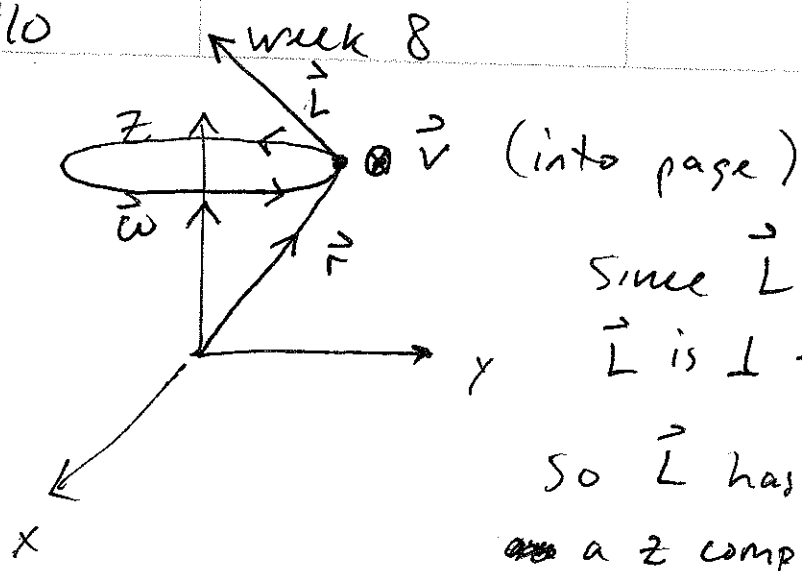 10
week 8
L⃗
z
⊗ v⃗ (into page)
ω⃗
r⃗
Since L⃗
y
L⃗ is ⊥
So L⃗ has
x
a z comp